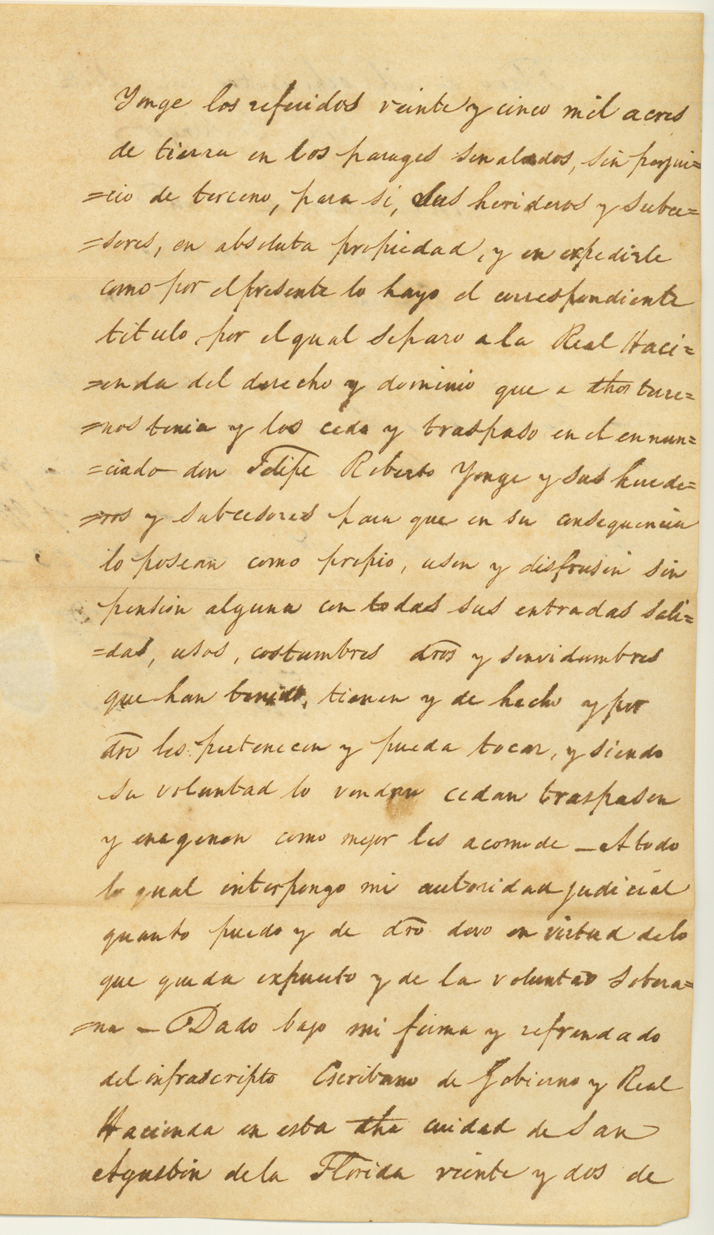 Yonge los referidos veinte y cinco mil acres
de tierra en los parages senalados, sin perjui=
=cio de terceno, para si, sus herideros y subce=
=sores, en absoluta propiedad, y en expedirle
como por el presente lo hago el correspondiente
titulo, por el qual separo a la Real Haci=
=enda del derecho y dominio que a dhos terre=
=nos tenia y los cedo y traspaso en el ennun=
=ciado don Felipe Roberto Yonge y sus herede=
=ros y subcesores para que en su consequencia
lo posean como propio, usen y disfrusen sin
pension alguna con todas sus entradas sali=
=das, usos, costumbres dros y servidumbres
que han tenido, tienen y de hecho y por
dro les pertenecen y pueda tocar, y siendo
su voluntad lo vendan cedan traspasen
y enagenen como mejor les acomode — A todo
lo qual interpongo mi autoridad judicial
quanto puedo y de dro devo en virtud de lo
que queda expuesto y de la voluntad sobera=
=na — Dado bajo mi firma y refrendado
del infrascripto Escribano de Gobierno y Real
Hacienda en esta dha cuidad de San
Agustin de la Florida veinte y dos de